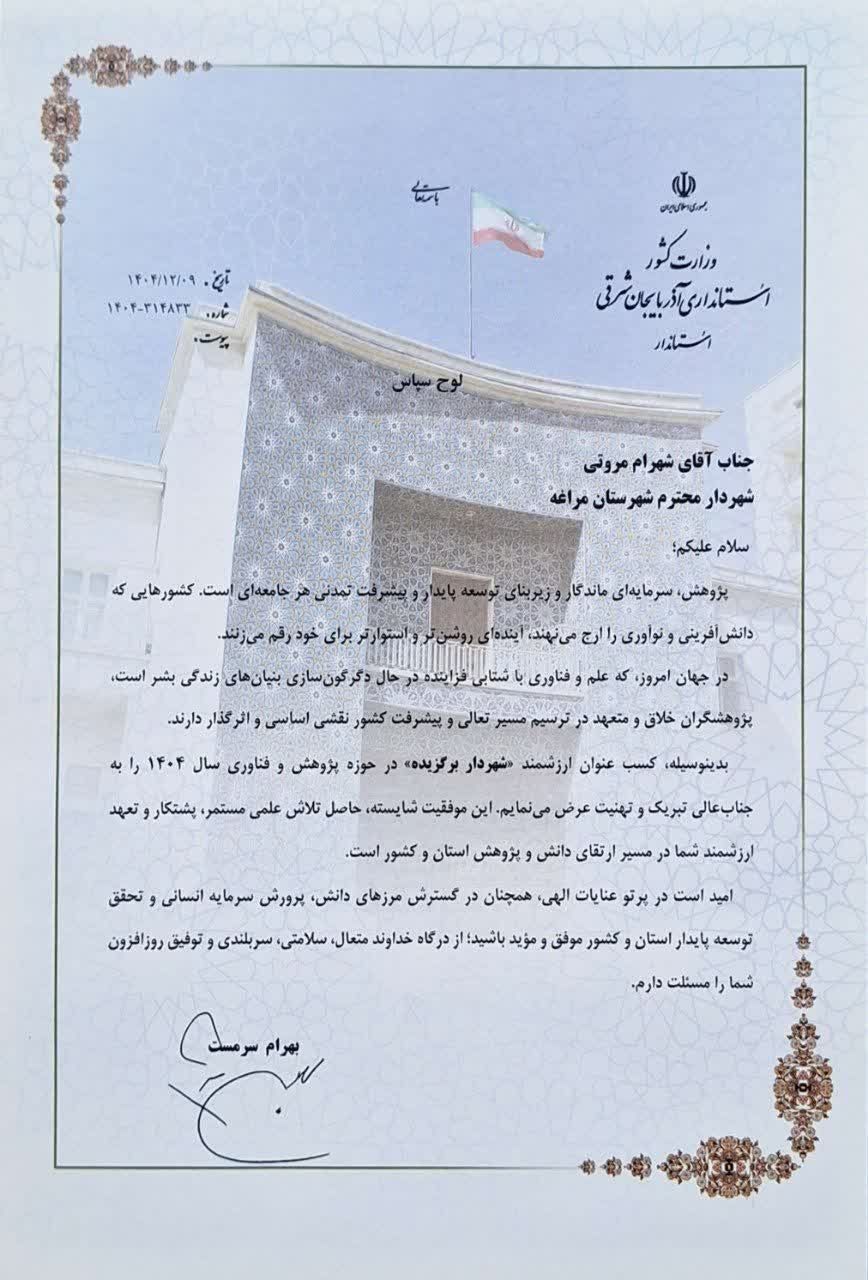 باسمه‌تعالی
جمهوری اسلامی ایران
وزارت کشور
استانداری آذربایجان شرقی
استاندار
تاریخ: ۱۴۰۴/۱۲/۰۹
شماره: ۱۴۰۴-۳۱۴۸۳۳
پیوست:
لوح سپاس
جناب آقای شهرام مروتی
شهردار محترم شهرستان مراغه
سلام علیکم؛
پژوهش، سرمایه‌ای ماندگار و زیربنای توسعه پایدار و پیشرفت تمدنی هر جامعه‌ای است. کشورهایی که
دانش‌آفرینی و نوآوری را ارج می‌نهند، آینده‌ای روشن‌تر و استوارتر برای خود رقم می‌زنند.
در جهان امروز، که علم و فناوری با شتابی فزاینده در حال دگرگون‌سازی بنیان‌های زندگی بشر است،
پژوهشگران خلاق و متعهد در ترسیم مسیر تعالی و پیشرفت کشور نقشی اساسی و اثرگذار دارند.
بدینوسیله، کسب عنوان ارزشمند «شهردار برگزیده» در حوزه پژوهش و فناوری سال ۱۴۰۴ را به
جناب‌عالی تبریک و تهنیت عرض می‌نمایم. این موفقیت شایسته، حاصل تلاش علمی مستمر، پشتکار و تعهد
ارزشمند شما در مسیر ارتقای دانش و پژوهش استان و کشور است.
امید است در پرتو عنایات الهی، همچنان در گسترش مرزهای دانش، پرورش سرمایه انسانی و تحقق
توسعه پایدار استان و کشور موفق و مؤید باشید؛ از درگاه خداوند متعال، سلامتی، سربلندی و توفیق روزافزون
شما را مسئلت دارم.
بهرام سرمست